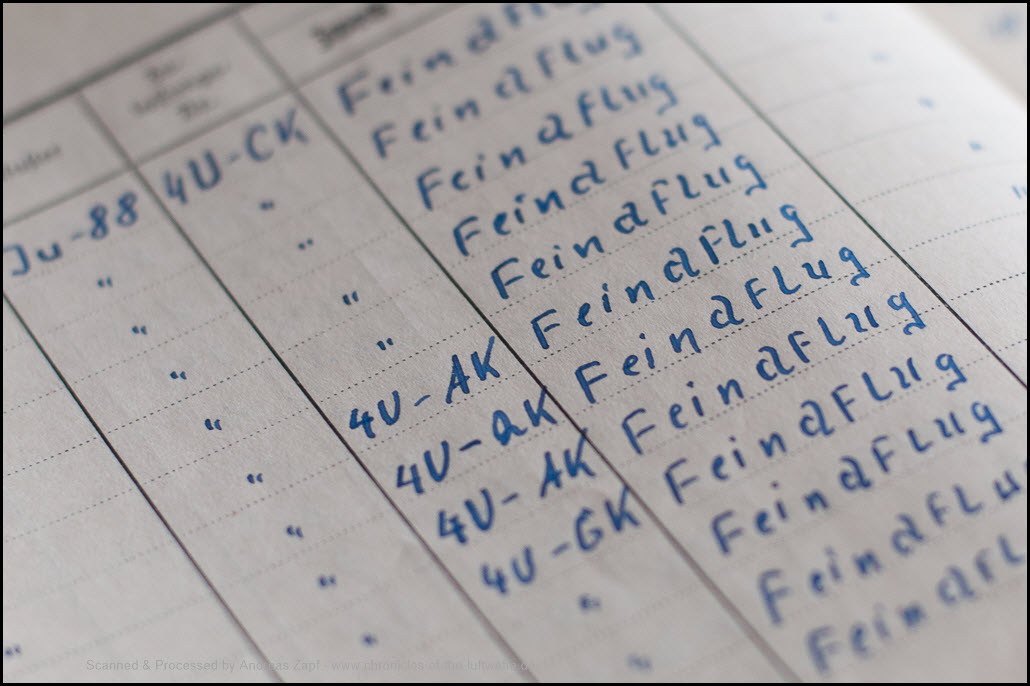 Ju-88 4U-CK Feindflug
" " Feindflug
" " Feindflug
" " Feindflug
" " Feindflug
" 4U-AK Feindflug
" 4U-QK Feindflug
" 4U-AK Feindflug
" 4U-GK Feindflug
" Feindflug
" Feindflu
Feindfl
Scanned & Processed by Andreas Zapf - www.chronicles-of-the-luftwaffe.de